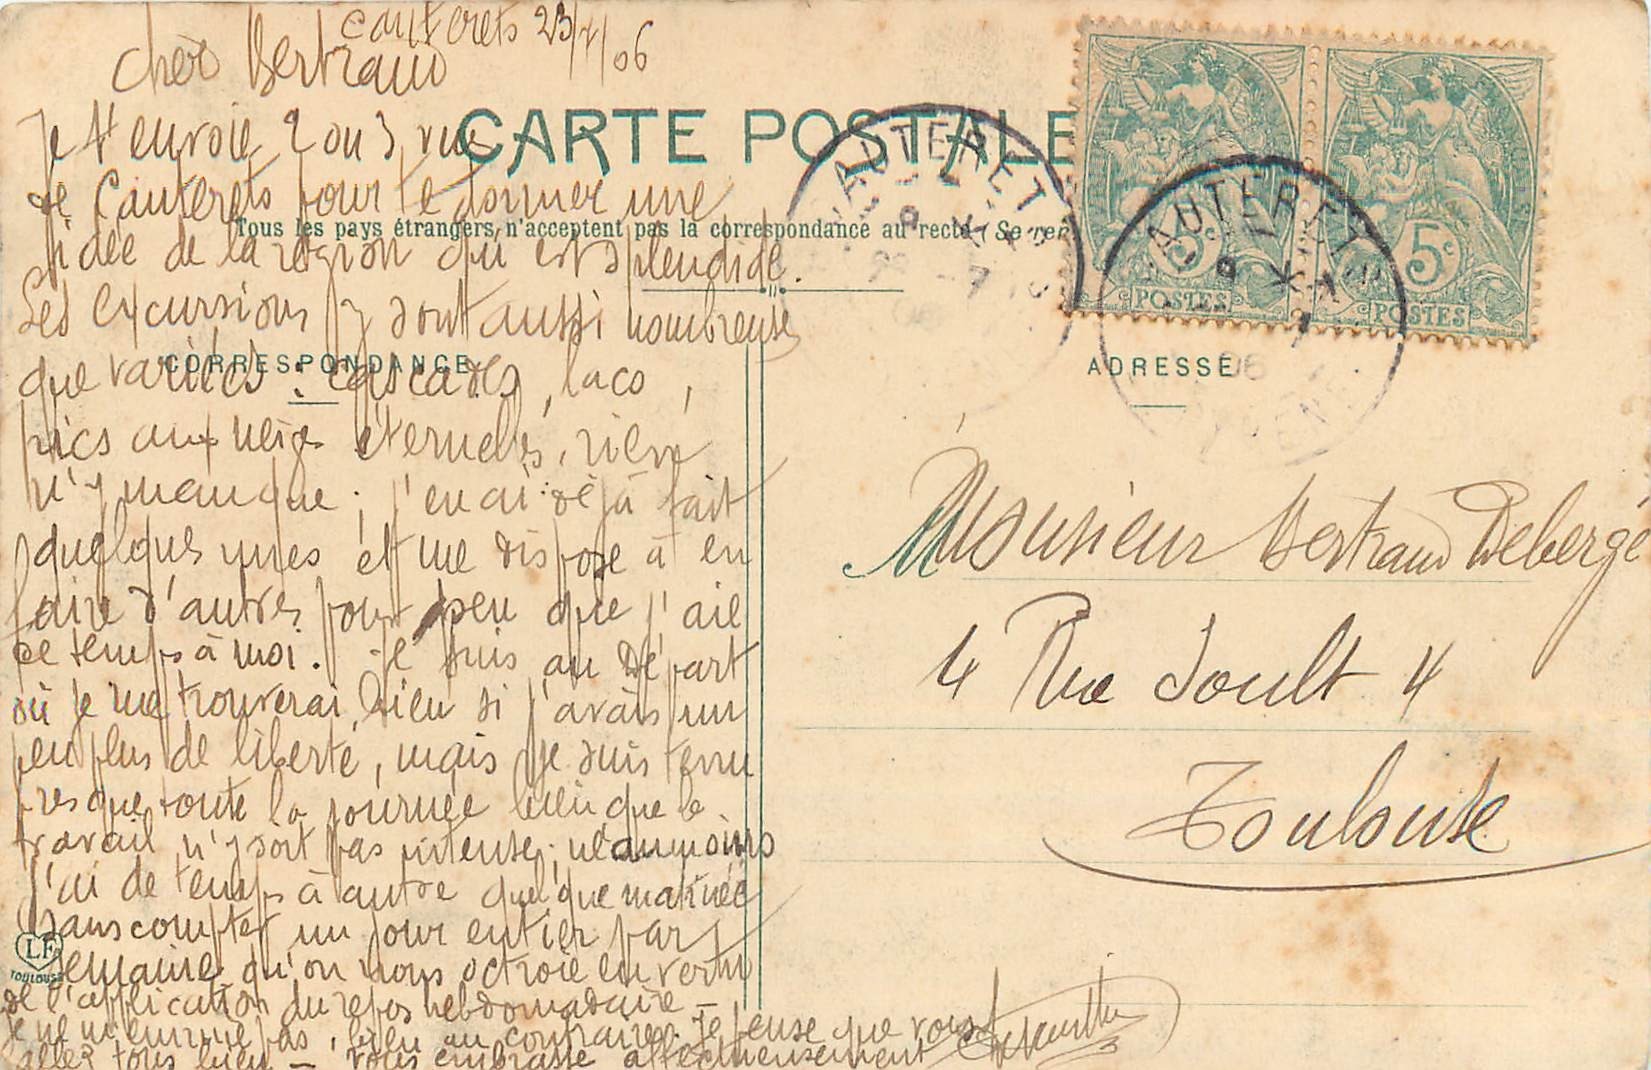 Cauterets 23/7/06
Cher Bertrand
Je t'envoie 2 ou 3 vues
de Cauterets pour te donner une
idée de la région qui est splendide.
Les excursions y sont aussi nombreuses
que variées : cascades, lacs,
pics aux neiges éternelles, rien
n'y manque ; j'en ai déjà fait
quelques unes et me dispose à en
faire d'autres pour peu que j'aie
de temps à moi. Je suis au départ
où je me trouverai bien si j'avais un
peu plus de liberté, mais je suis tenu
presque toute la journée bien que le
travail n'y soit pas intense ; néanmoins
j'ai de temps à autre quelque matinée
sans compter un jour entier par
semaine qu'on nous octroie en vertu
de l'application du repos hebdomadaire -
Je ne m'ennuie pas, bien au contraire. Je pense que vous
allez tous bien - vous embrasse affectueusement
CARTE POSTALE
Tous les pays étrangers n'acceptent pas la correspondance au recto (Se ren
CORRESPONDANCE
ADRESSE
CAUTERETS
5c
POSTES
5c
POSTES
CAUTERETS
Monsieur Bertrand Debergé
4 Rue Soult 4
Toulouse
LF
TOULOUSE